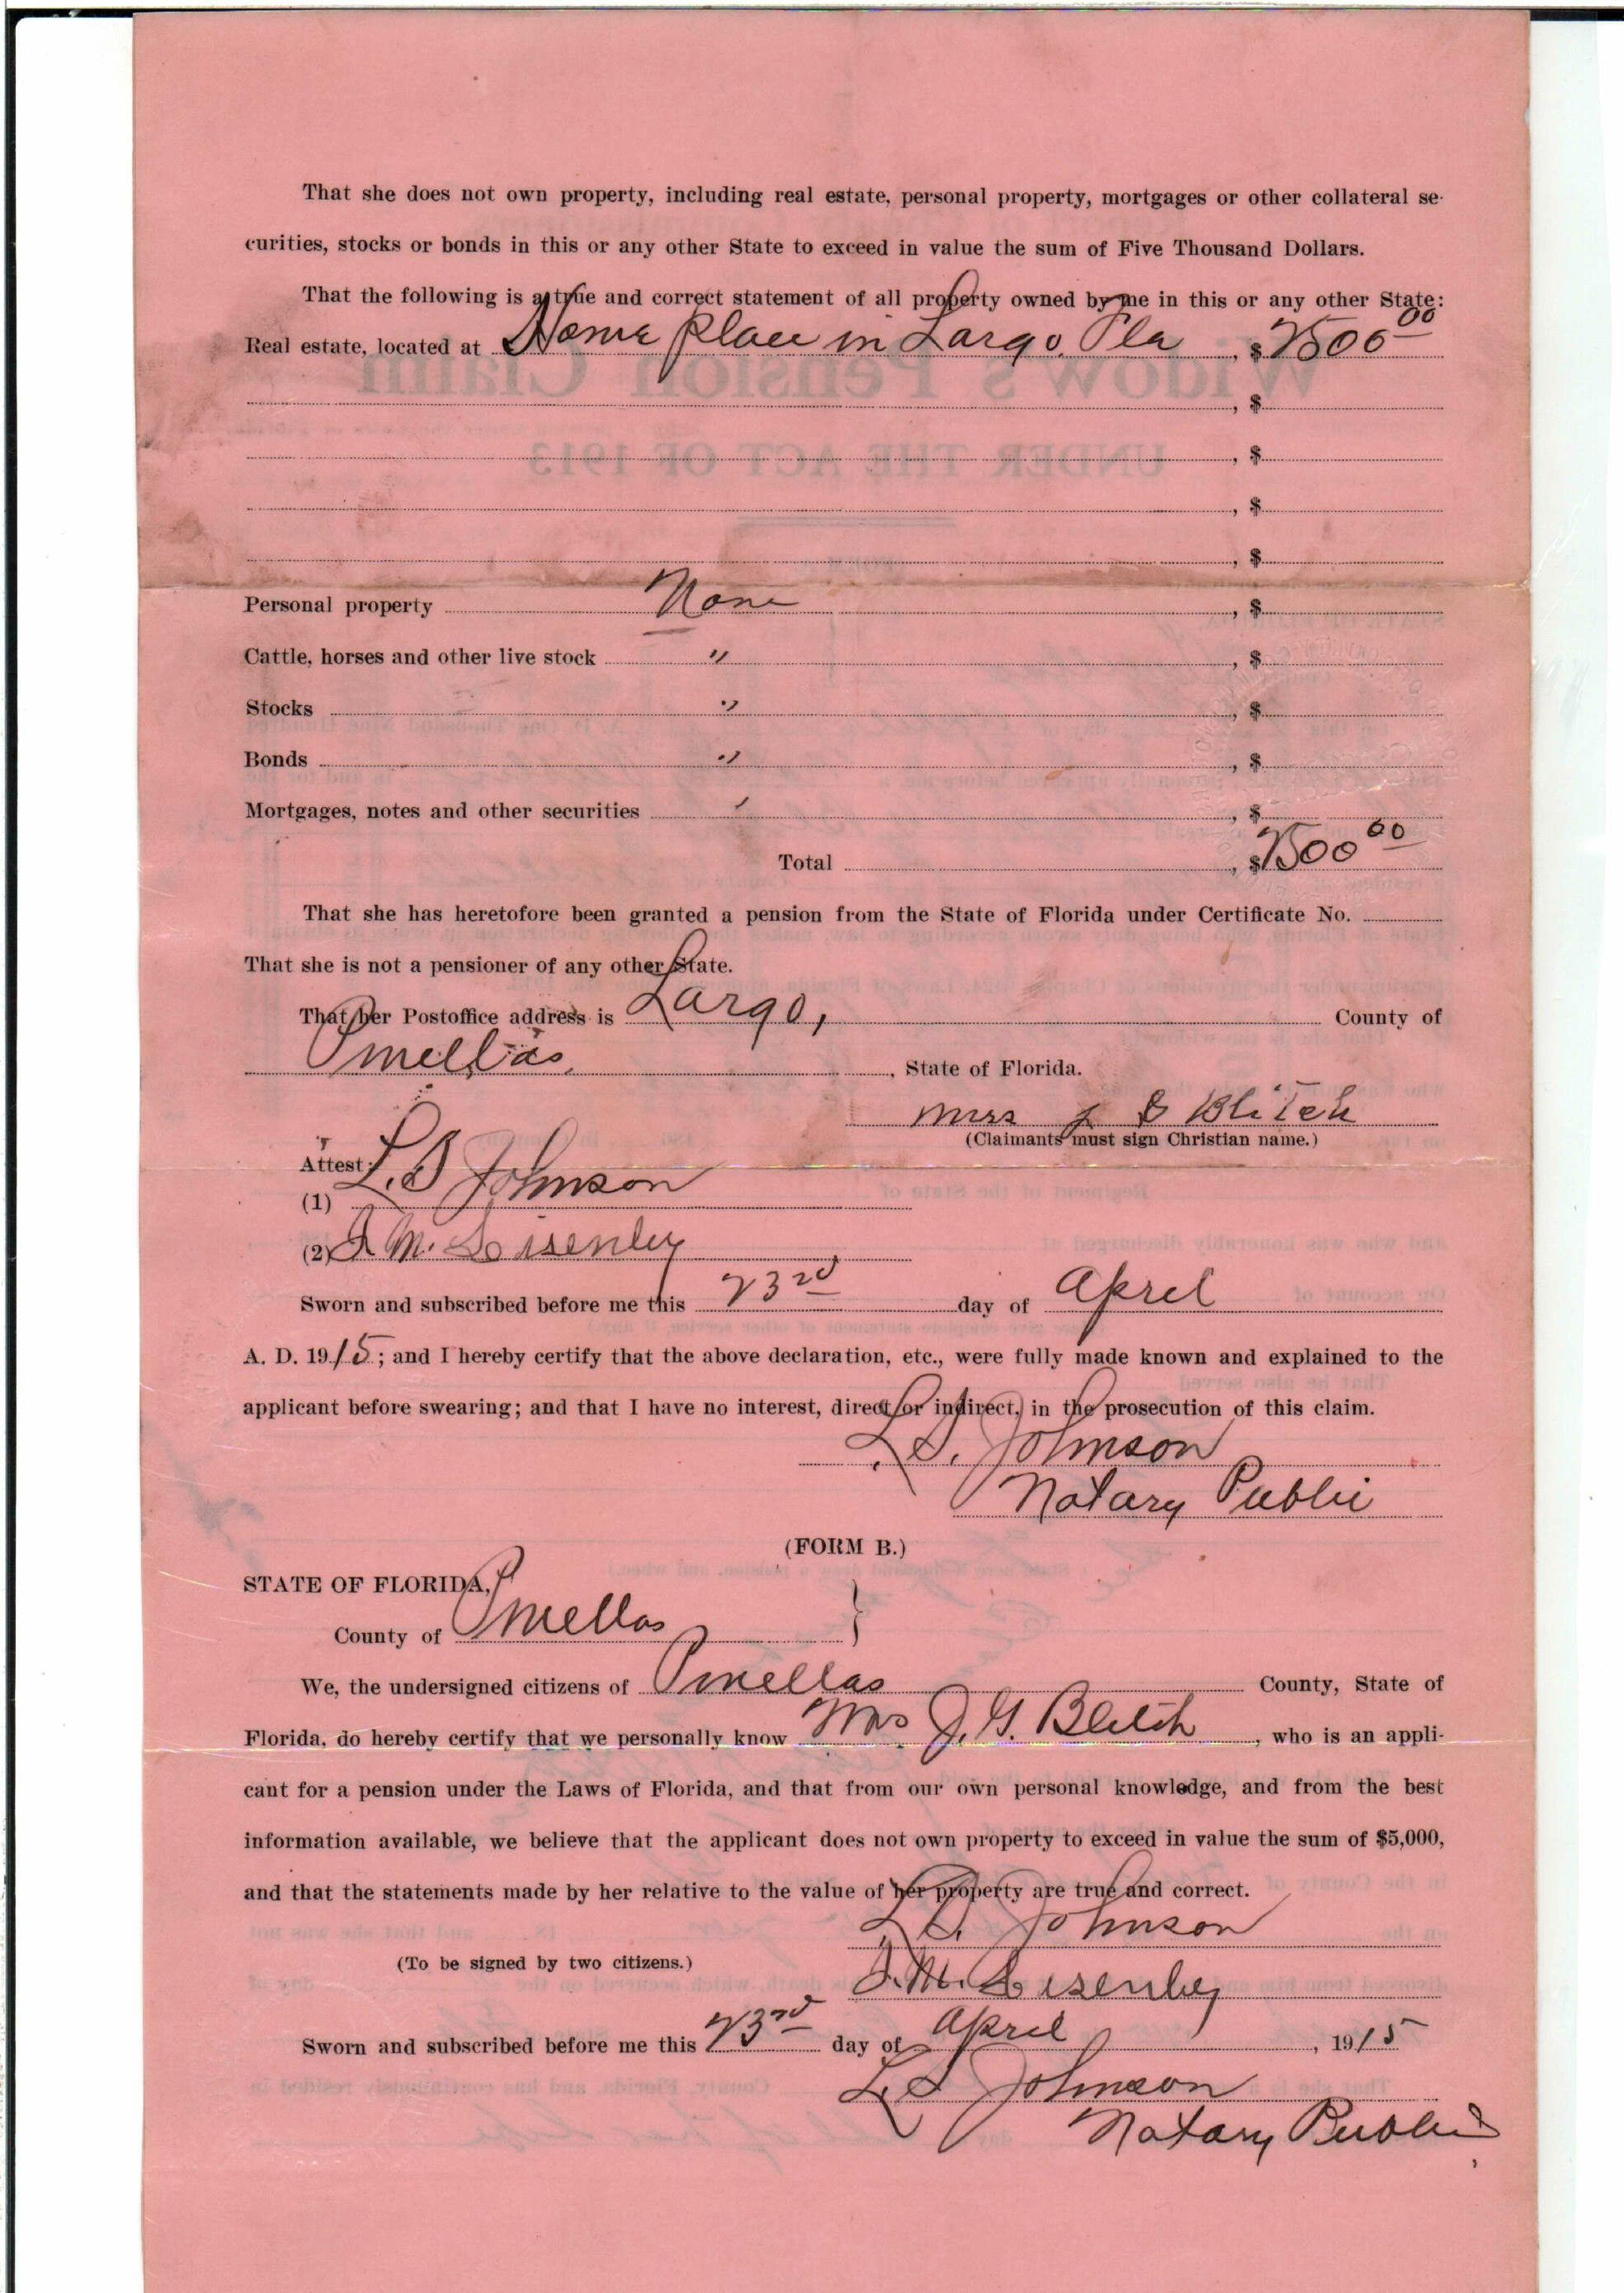 That she does not own property, including real estate, personal property, mortgages or other collateral se-
curities, stocks or bonds in this or any other State to exceed in value the sum of Five Thousand Dollars.
That the following is a true and correct statement of all property owned by me in this or any other State:
Real estate, located at Home place in Largo, Fla , $ 2500 00
, $
, $
, $
, $
Personal property None , $
Cattle, horses and other live stock " , $
Stocks " , $
Bonds " , $
Mortgages, notes and other securities , $
Total , $ 2500 00
That she has heretofore been granted a pension from the State of Florida under Certificate No.
That she is not a pensioner of any other State.
That her Postoffice address is Largo, County of
Pinellas, , State of Florida.
Mrs J G Blitch
(Claimants must sign Christian name.)
Attest:
(1) L. S. Johnson
(2) M. Lisenby
Sworn and subscribed before me this 23rd day of April
A. D. 1915; and I hereby certify that the above declaration, etc., were fully made known and explained to the
applicant before swearing; and that I have no interest, direct or indirect, in the prosecution of this claim.
L. S. Johnson
Notary Public
(FORM B.)
STATE OF FLORIDA,
County of Pinellas }
We, the undersigned citizens of Pinellas County, State of
Florida, do hereby certify that we personally know Mrs J. G. Blitch , who is an appli-
cant for a pension under the Laws of Florida, and that from our own personal knowledge, and from the best
information available, we believe that the applicant does not own property to exceed in value the sum of $5,000,
and that the statements made by her relative to the value of her property are true and correct.
L. S. Johnson
(To be signed by two citizens.)
M. Lisenby
Sworn and subscribed before me this 23rd day of April , 1915
L. S. Johnson
Notary Public